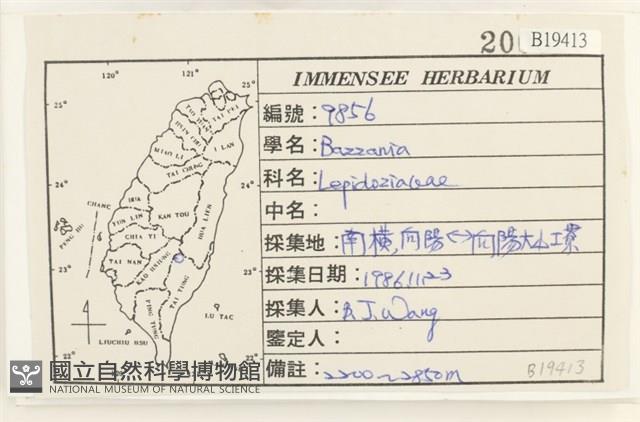 20
B19413
IMMENSEE HERBARIUM
編號：9856
學名：Bazzania
科名：Lepidoziaceae
中名：
採集地：南橫,向陽<->向陽大山工寮
採集日期：1986.11.2-3
採集人：B.J.Wang
鑒定人：
備註：2200~2850m
B19413
120°
121°
25°
25°
24°
24°
23°
23°
22°
22°
TAI PEI
TAO YUAN
HSIN CHU
I LAN
MIAO LI
TAI CHUNG
CHANG HUA
YUN LIN
KAN TOU
HUA LIEN
PENG HU
CHIA YI
TAI NAN
KAO HSIUNG
TAI TUNG
PING TUNG
LU TAO
LIUCHIU HSU
國立自然科學博物館
NATIONAL MUSEUM OF NATURAL SCIENCE